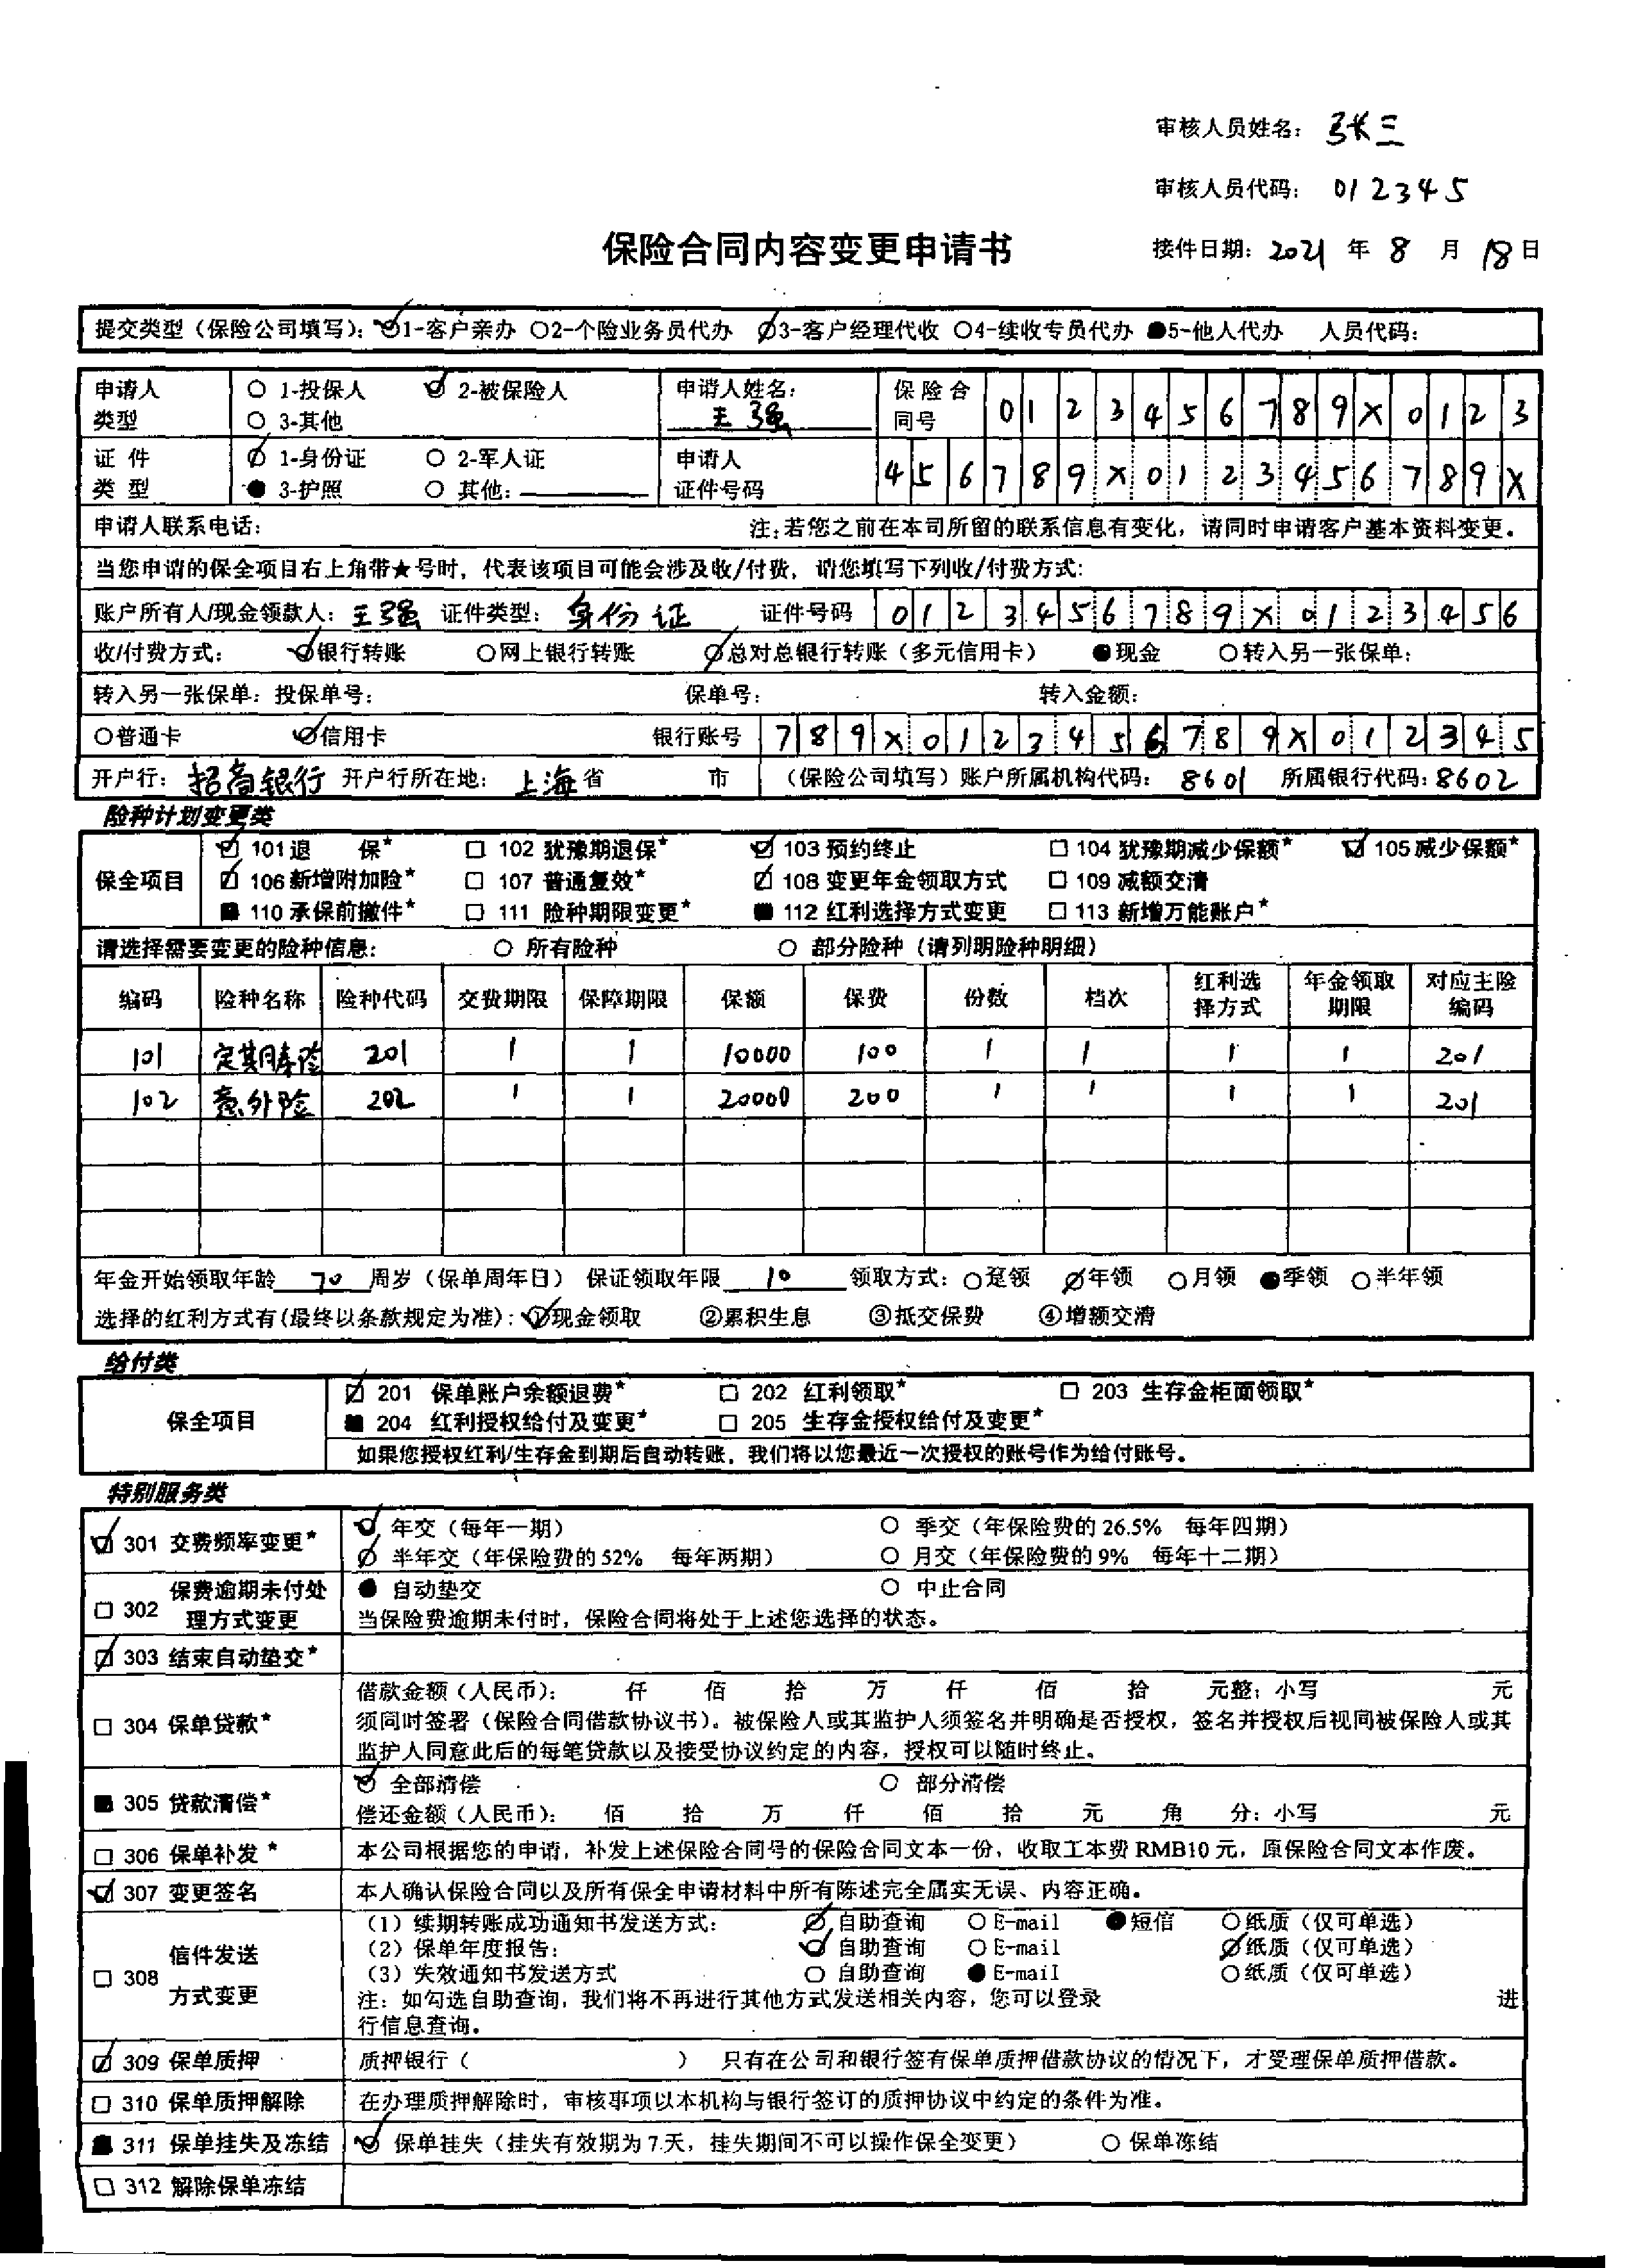 审核人员姓名：张三
审核人员代码：012345
保险合同内容变更申请书
接件日期：2021 年 8 月 18 日
提交类型（保险公司填写）：☑1-客户亲办 ○2-个险业务员代办 ☑3-客户经理代收 ○4-续收专员代办 ●5-他人代办 人员代码：
申请人类型 ○ 1-投保人 ☑ 2-被保险人 ○ 3-其他
申请人姓名：王强
保险合同号 0123456789X0123
证件类型 ☑ 1-身份证 ○ 2-军人证 ● 3-护照 ○ 其他：
申请人证件号码 456789X0123456789X
申请人联系电话： 注：若您之前在本司所留的联系信息有变化，请同时申请客户基本资料变更。
当您申请的保全项目右上角带★号时，代表该项目可能会涉及收/付费，请您填写下列收/付费方式：
账户所有人/现金领款人：王强 证件类型：身份证 证件号码 0123456789X0123456
收/付费方式： ☑银行转账 ○网上银行转账 ☑总对总银行转账（多元信用卡） ●现金 ○转入另一张保单：
转入另一张保单：投保单号： 保单号： 转入金额：
○普通卡 ☑信用卡 银行账号 789X0123456789X012345
开户行：招商银行 开户行所在地：上海省 市 （保险公司填写）账户所属机构代码：8601 所属银行代码：8602
险种计划变更类
保全项目
☑ 101 退 保* □ 102 犹豫期退保* ☑ 103 预约终止 □ 104 犹豫期减少保额* ☑ 105 减少保额*
☑ 106 新增附加险* □ 107 普通复效* ☑ 108 变更年金领取方式 □ 109 减额交清
■ 110 承保前撤件* □ 111 险种期限变更* ■ 112 红利选择方式变更 □ 113 新增万能账户*
请选择需要变更的险种信息： ○ 所有险种 ○ 部分险种（请列明险种明细）
编码 险种名称 险种代码 交费期限 保障期限 保额 保费 份数 档次 红利选择方式 年金领取期限 对应主险编码
101 定期寿险 201 1 1 10000 100 1 1 1 1 201
102 意外险 202 1 1 20000 200 1 1 1 1 201
年金开始领取年龄 70 周岁（保单周年日） 保证领取年限 10 领取方式：○趸领 ☑年领 ○月领 ●季领 ○半年领
选择的红利方式有(最终以条款规定为准)：①现金领取 ②累积生息 ③抵交保费 ④增额交清
给付类
保全项目
☑ 201 保单账户余额退费* □ 202 红利领取* □ 203 生存金柜面领取*
■ 204 红利授权给付及变更* □ 205 生存金授权给付及变更*
如果您授权红利/生存金到期后自动转账，我们将以您最近一次授权的账号作为给付账号。
特别服务类
☑ 301 交费频率变更* ☑ 年交（每年一期） ○ 季交（年保险费的 26.5% 每年四期）
☑ 半年交（年保险费的 52% 每年两期） ○ 月交（年保险费的 9% 每年十二期）
□ 302 保费逾期未付处理方式变更 ● 自动垫交 ○ 中止合同
当保险费逾期未付时，保险合同将处于上述您选择的状态。
☑ 303 结束自动垫交*
□ 304 保单贷款* 借款金额（人民币）： 仟 佰 拾 万 仟 佰 拾 元整；小写 元
须同时签署（保险合同借款协议书）。被保险人或其监护人须签名并明确是否授权，签名并授权后视同被保险人或其
监护人同意此后的每笔贷款以及接受协议约定的内容，授权可以随时终止。
■ 305 贷款清偿* ☑ 全部清偿 ○ 部分清偿
偿还金额（人民币）： 佰 拾 万 仟 佰 拾 元 角 分；小写 元
□ 306 保单补发* 本公司根据您的申请，补发上述保险合同号的保险合同文本一份，收取工本费 RMB10 元，原保险合同文本作废。
☑ 307 变更签名 本人确认保险合同以及所有保全申请材料中所有陈述完全属实无误、内容正确。
□ 308 信件发送方式变更
（1）续期转账成功通知书发送方式： ☑自助查询 ○ E-mail ●短信 ○纸质（仅可单选）
（2）保单年度报告： ☑自助查询 ○ E-mail ☑纸质（仅可单选）
（3）失效通知书发送方式 ○ 自助查询 ● E-mail ○纸质（仅可单选）
注：如勾选自助查询，我们将不再进行其他方式发送相关内容，您可以登录 进
行信息查询。
☑ 309 保单质押 质押银行（ ） 只有在公司和银行签有保单质押借款协议的情况下，才受理保单质押借款。
□ 310 保单质押解除 在办理质押解除时，审核事项以本机构与银行签订的质押协议中约定的条件为准。
■ 311 保单挂失及冻结 ☑ 保单挂失（挂失有效期为 7 天，挂失期间不可以操作保全变更） ○ 保单冻结
□ 312 解除保单冻结